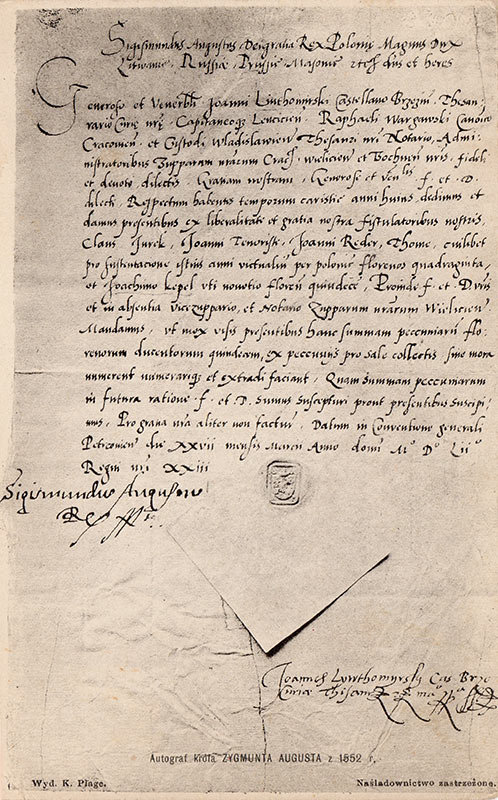 Sigismundus Augustus Dei gratia Rex Polonię Magnus Dux
Lithuanię, Russiæ, Prussię Masovię etc dns et heres
Generoso et Venerbli Joanni Liuthomirski Castellano Brzezin, Thesau
rario Curię nrę, Capitaneoqz Lencicien. Raphaeli Wargawski Canoico
Cracovien, et Custodi Wladislavien Thesauri nri Notario, Admi-
nistratoribus Zupparum nrarum Crac, wielicien et Bochnen nris, fideli
et devoto dilectis. Gratiam nostram, Generose et venlis f. et D.
dilecti. Respectum habentes temporum caristię anni huius, dedimus et
damus presentibus ex liberalitate et gratia nostra fistulatoribus nostris,
Claus Jurek, Joanni Tenorista, Joanni Reder, Thome, cuilibet
pro sustentacione istius anni victualiu per polonic florenos quadraginta,
et Joachimo Kepel uti novitio florenos quindecē, Proinde f. et D. vris
et in absentia vicezuppario, et Notario Zupparum nrarum Wielicien
Mandamus, ut mox visis presentibus hanc summam pecuniarū flo-
renorum ducentorum quindecim, ex pecuniis pro sale collectis sine mora
numerent numerariqz et extradi faciant, Quam summam pecuniarum
in futura ratione f. et D. sumus suscepturi prout presentibus suscipi-
mus, Pro gratia nra aliter non factur. Datum in Conventione generali
Petricovien die XXvii mensis Marcii Anno domi Mo Do Lii o
Regni nri XXiii
Sigismundus Augustus
Rex
Joannes Lyuthomyrsky Cas Brze
Curiæ Thesau
Autograf króla ZYGMUNTA AUGUSTA z 1552 r.
Wyd. K. Plage.
Naśladownictwo zastrzeżone.